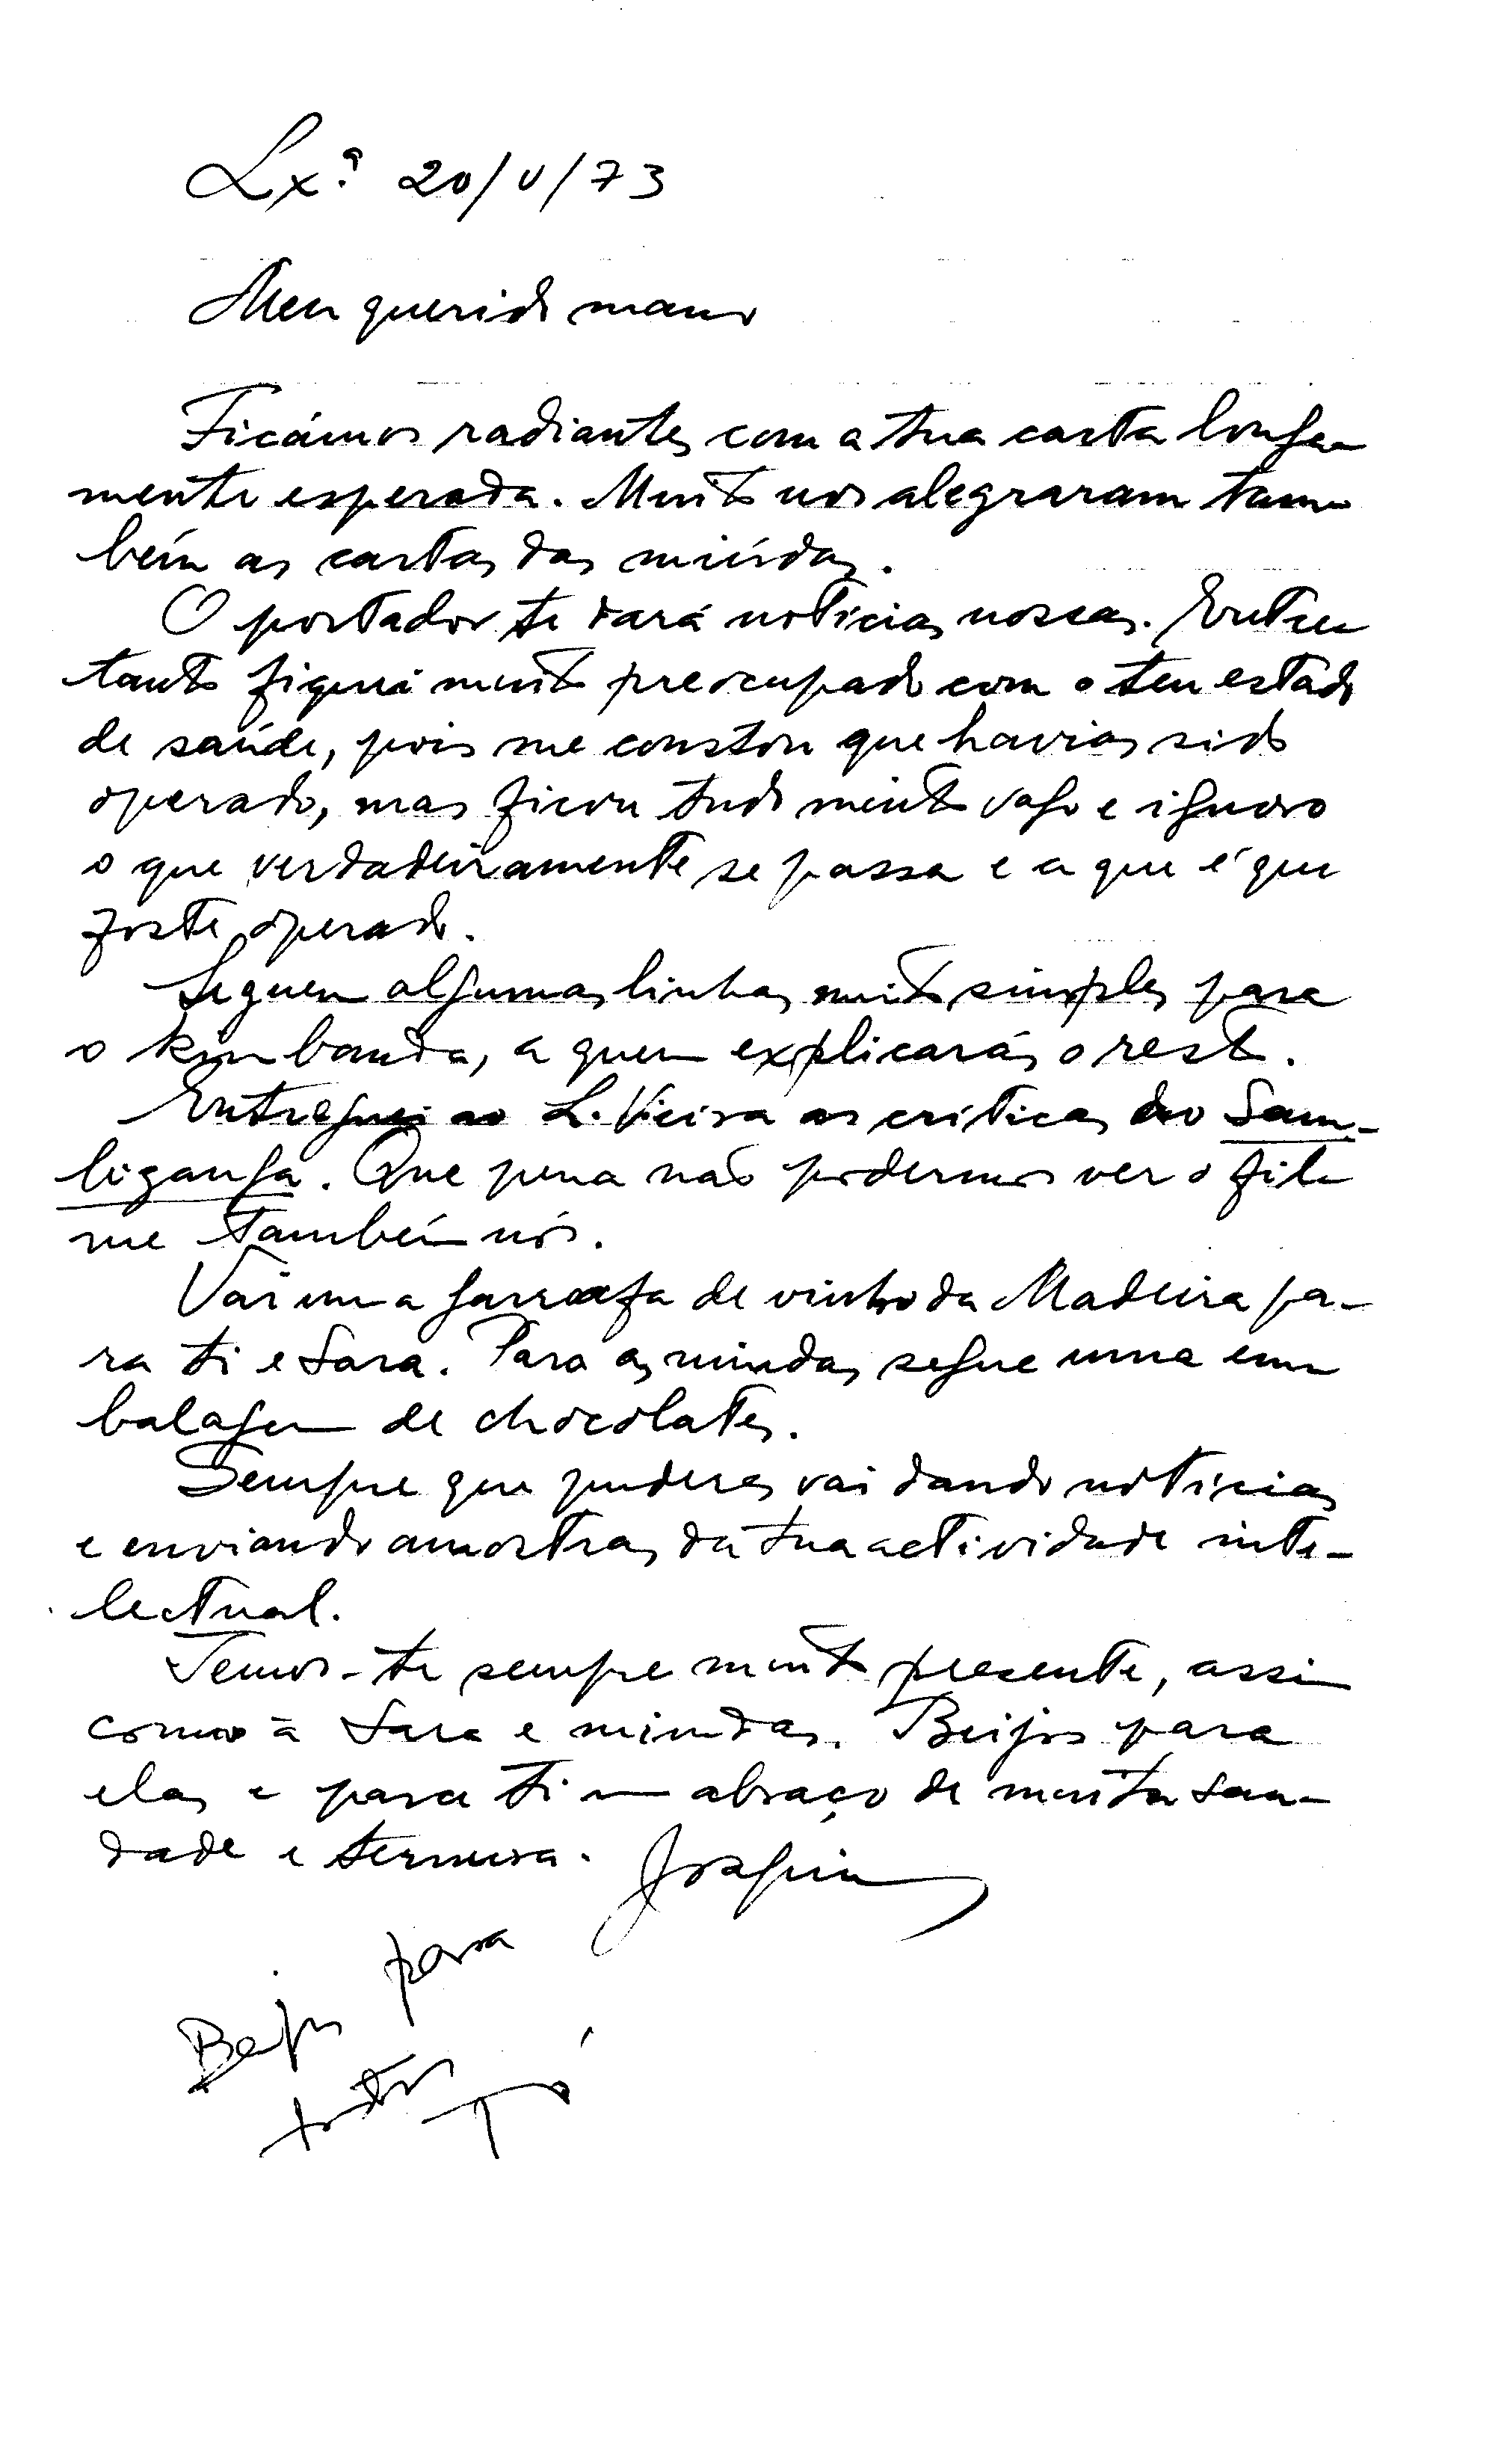 Lx.ª 20/V/73
Meu querido mano
Ficámos radiantes com a tua carta longa
mente esperada. Muito nos alegraram tam
bém as cartas das miúdas.
O portador te dará notícias nossas. Entre
tanto fiquei muito preocupado com o teu estado
de saúde, pois me constou que havias sido
operado, mas ficou tudo muito vago e ignoro
o que verdadeiramente se passa e a que é que
foste operado.
Seguem algumas linhas muito simples para
o kimbanda, a quem explicarás o resto.
Entreguei ao L. Vieira as críticas do Sam-
bizanga. Que pena não podermos ver o fil
me também nós.
Vai uma garrafa de vinho da Madeira pa-
ra ti e Sara. Para as miudas segue uma em
balagem de chocolates.
Sempre que puderes vai dando notícias
e enviando amostras da tua actividade inte-
lectual.
Temos-te sempre muito presente, assim
como à Sara e miudas. Beijos para
elas e para ti um abraço de muita sau-
dade e ternura. Joaquim
Beijos para
todos